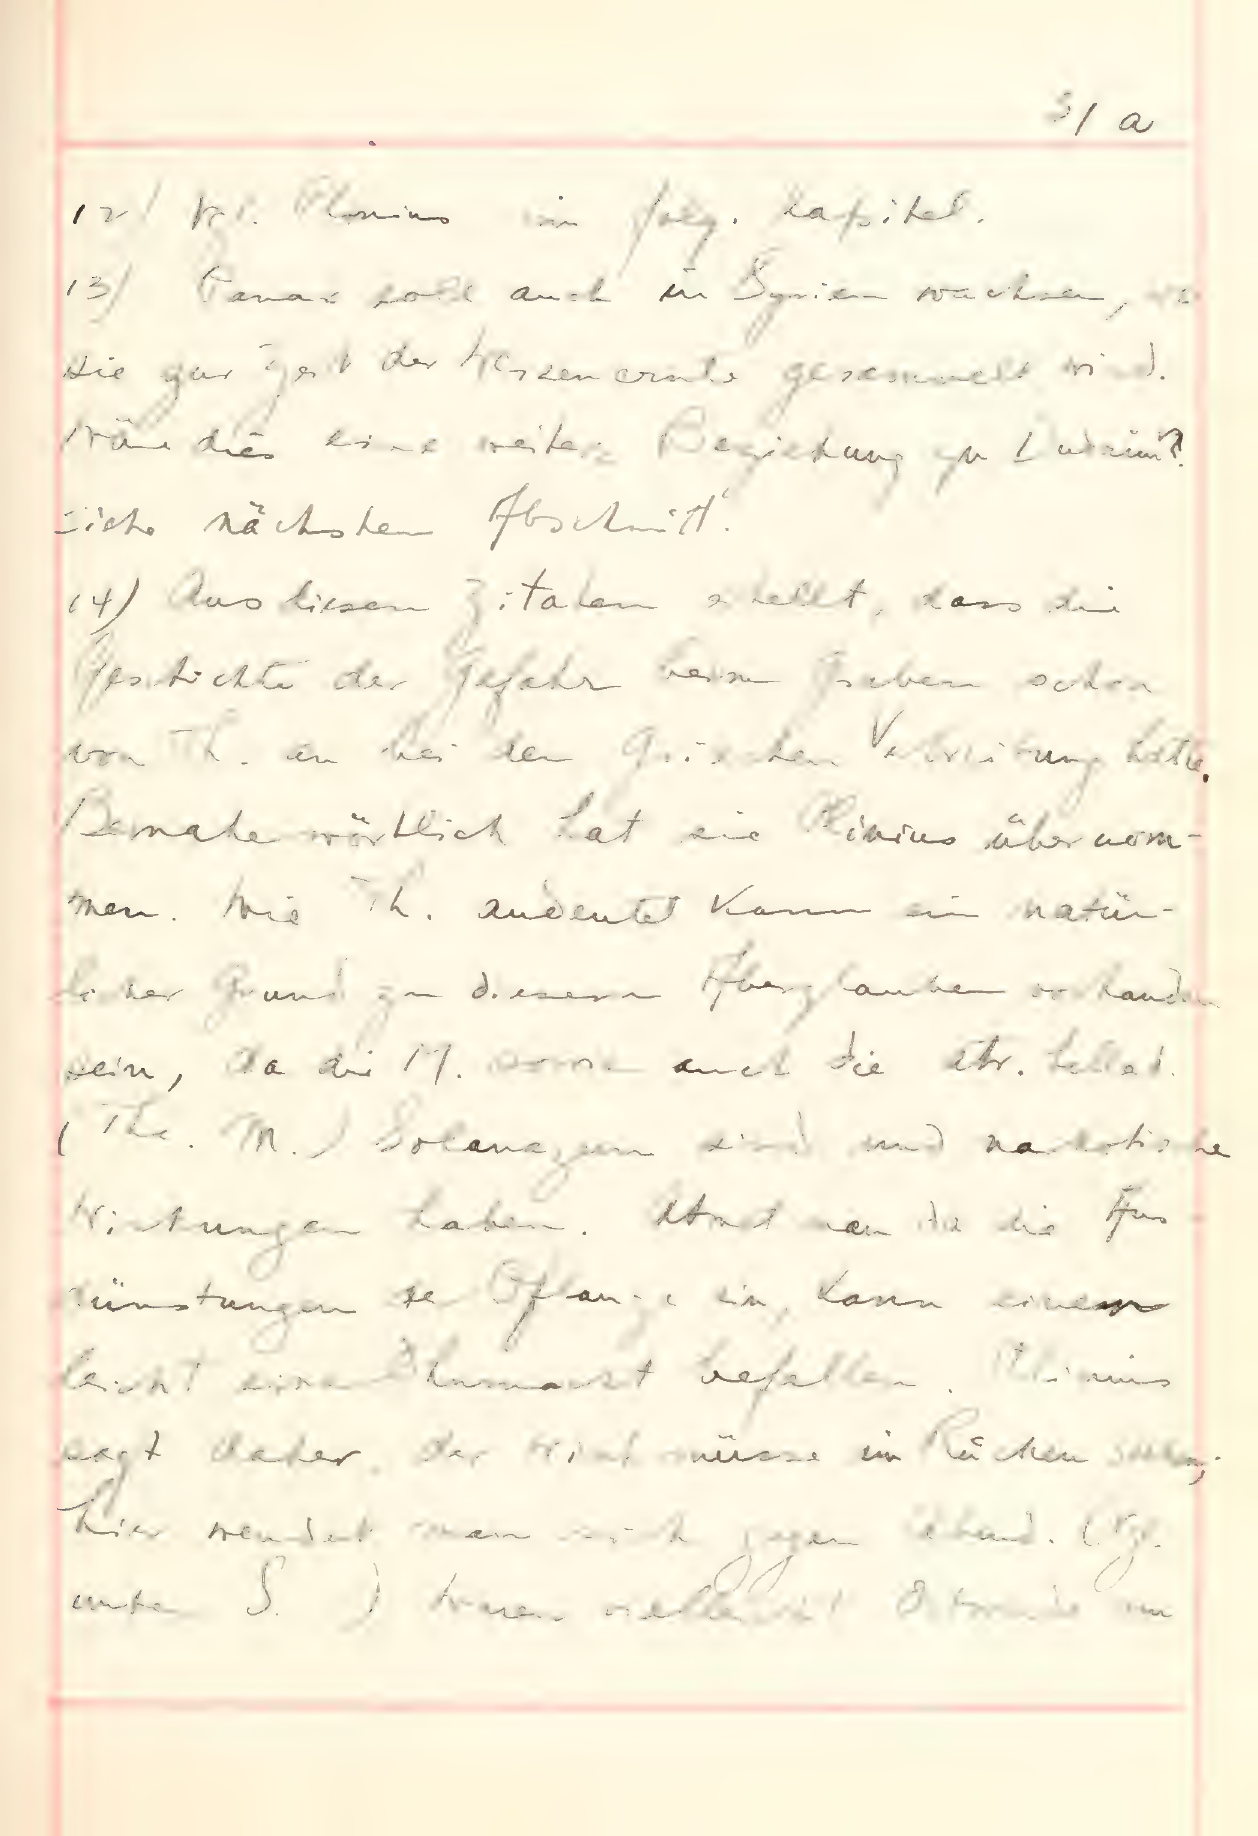 31 a
12) Vgl. Plinius im folg. Kapitel.
13) Panax soll auch in Syrien wachsen, wo
sie zur Zeit der Weizenernte gesammelt wird.
Wäre dies eine weitere Beziehung zu Dudaim?
Siehe nächsten Abschnitt.
14) Aus diesen Zitaten erhellt, dass die
Geschichte der Gefahr beim Graben schon
von Th. an bei den Griechen Verbreitung hatte.
Beinahe wörtlich hat sie Plinius übernom-
men. Wie Th. andeutet kann ein natür-
licher Grund zu diesem Aberglauben vorhanden
sein, da die M. sowie auch die Atr. bellad.
(Th. M.) Solanazeen sind und narkotische
Wirkungen haben. Atmet man da die Aus-
dünstungen der Pflanze ein, kann einem
leicht eine Ohnmacht befallen. Plinius
sagt daher, der Wind müsse im Rücken stehen;
hier wendet man sich gegen Abend. (Vgl.
unten S. ) Waren vielleicht Ostwinde im